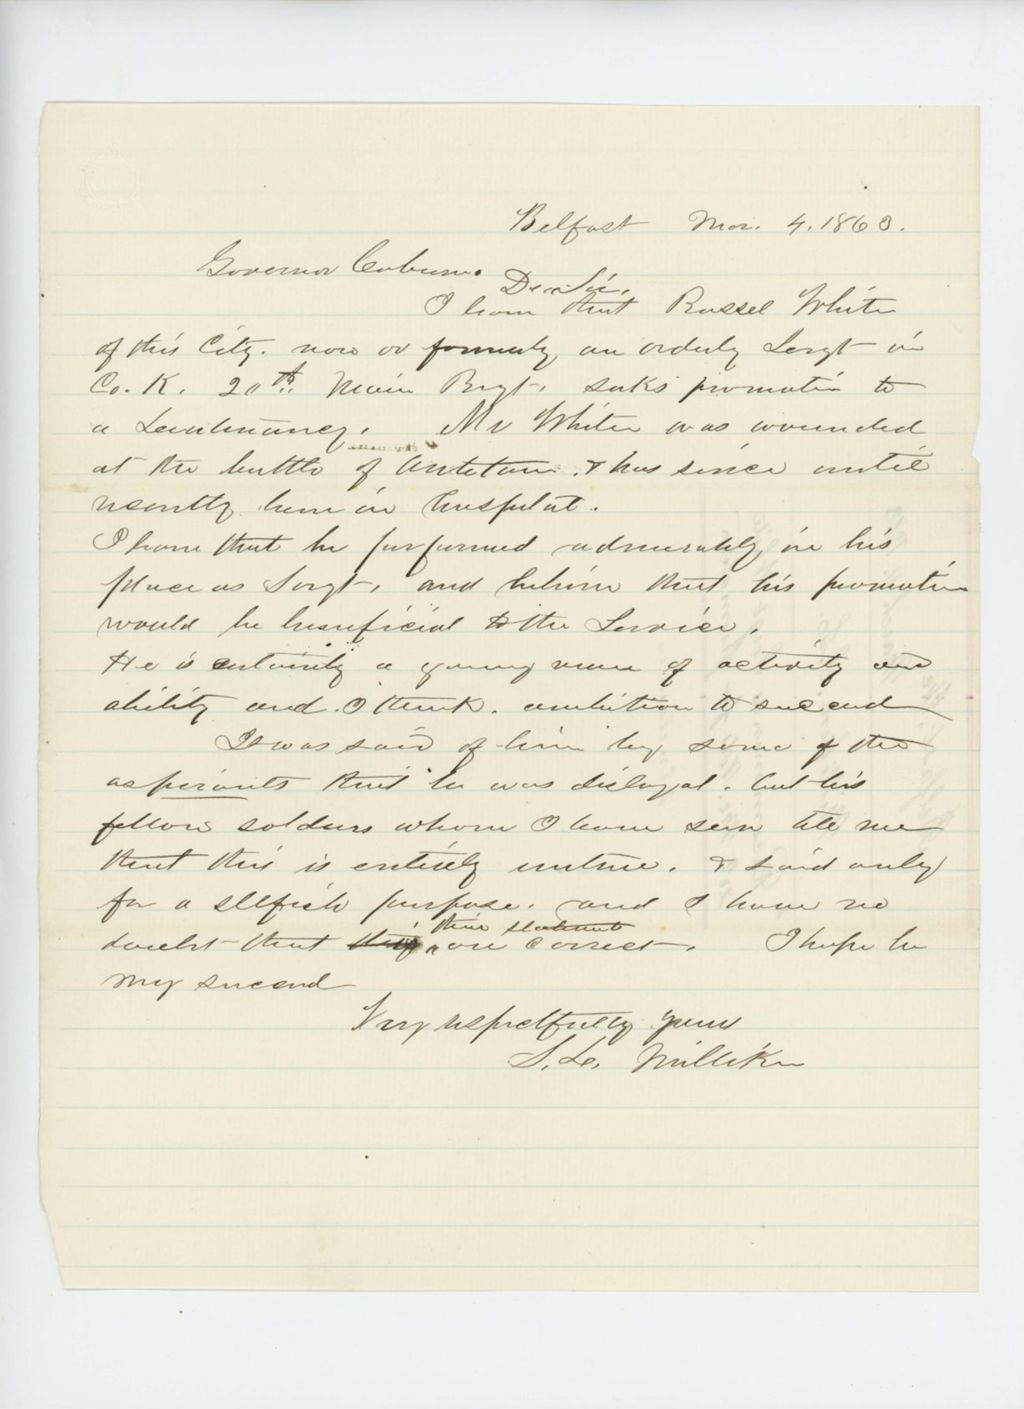 Belfast Mar. 4. 1863.
Governor Coburn.
Dear Sir.
I learn that Russel White
of this City. now or formerly an orderly Sergt in
Co. K. 20th. Maine Regt. seeks promotion to
a Lieutenancy. Mr White was wounded
at the battle of Antetam. & has since until
recently been in hospital.
I learn that he performed admirably in his
place as Sergt, and believe that his promotion
would be beneficial to the Service.
He is certainly a young man of activity and
ability and I think. ambition to succeed
It was said of him by some of the
aspirants that he was disloyal. but his
fellow soldiers whom I have seen tell me
that this is entirely untrue. & said only
for a selfish purpose. and I have no
doubt that their statements are correct. I hope he
may succeed
Very respectfully yours
S. L. Milliken